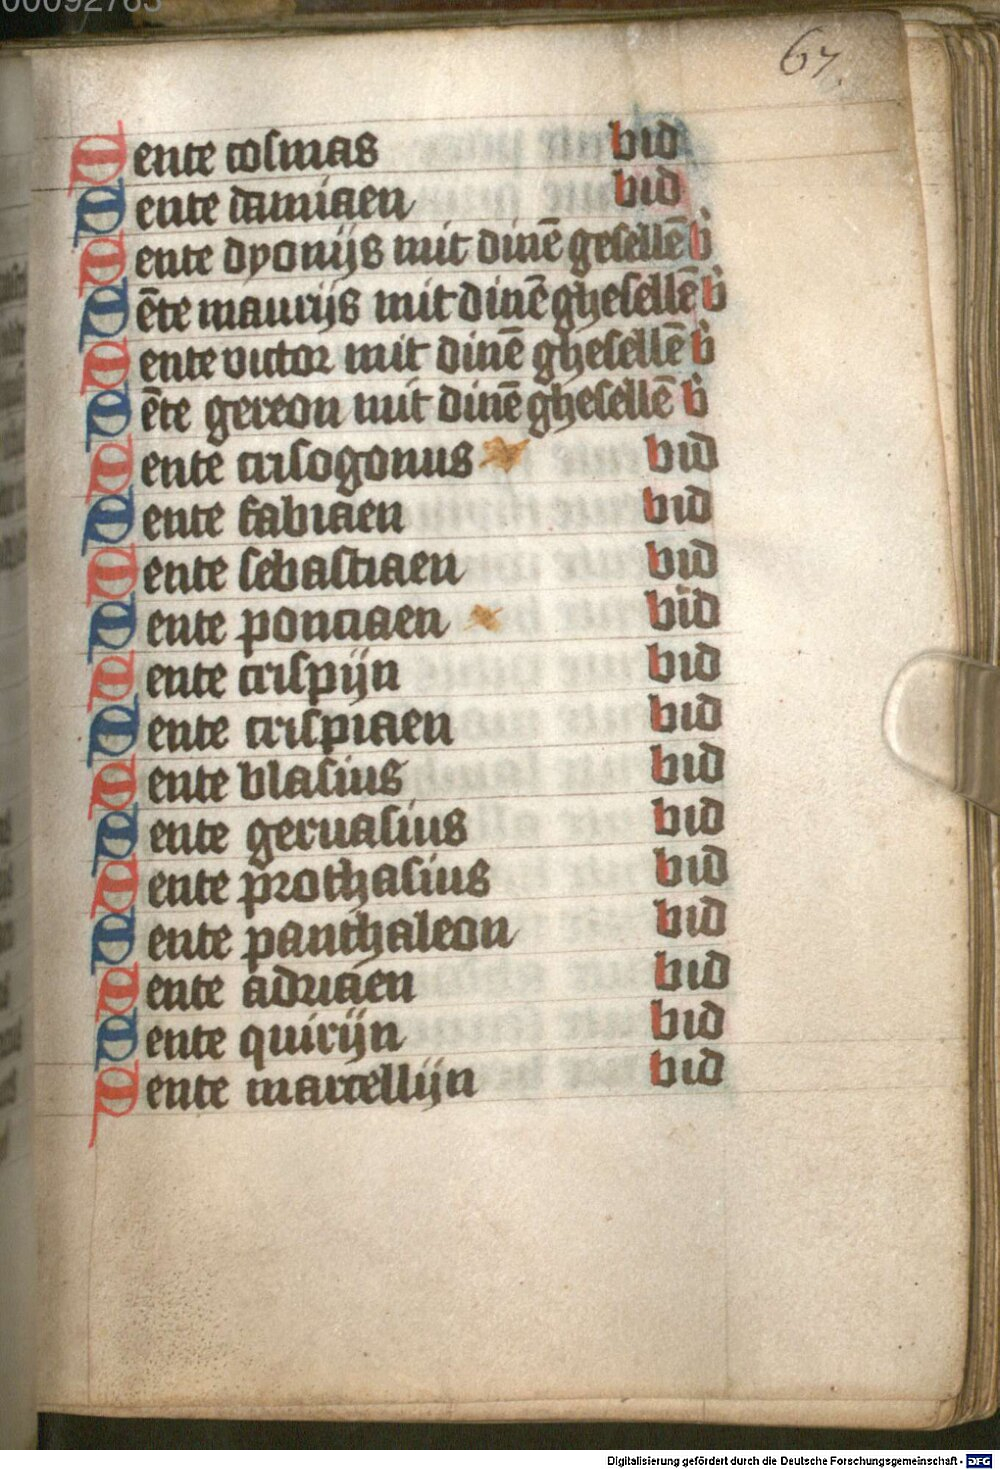 00092763
67.
Sente cosmas bid
Sente damiaen bid
Sente dyonijs mit dinē gesellē b
Sēte maurijs mit dinē ghesellē b
Sente victor mit dinē ghesellē b
Sēte gereon mit dinē ghesellē b
Sente crisogonus bid
Sente fabiaen bid
Sente sebastiaen bid
Sente ponciaen bid
Sente crispijn bid
Sente crispiaen bid
Sente blasius bid
Sente geruasius bid
Sente prothasius bid
Sente panthaleon bid
Sente adriaen bid
Sente quirijn bid
Sente marcellijn bid
Digitalisierung gefördert durch die Deutsche Forschungsgemeinschaft - DFG